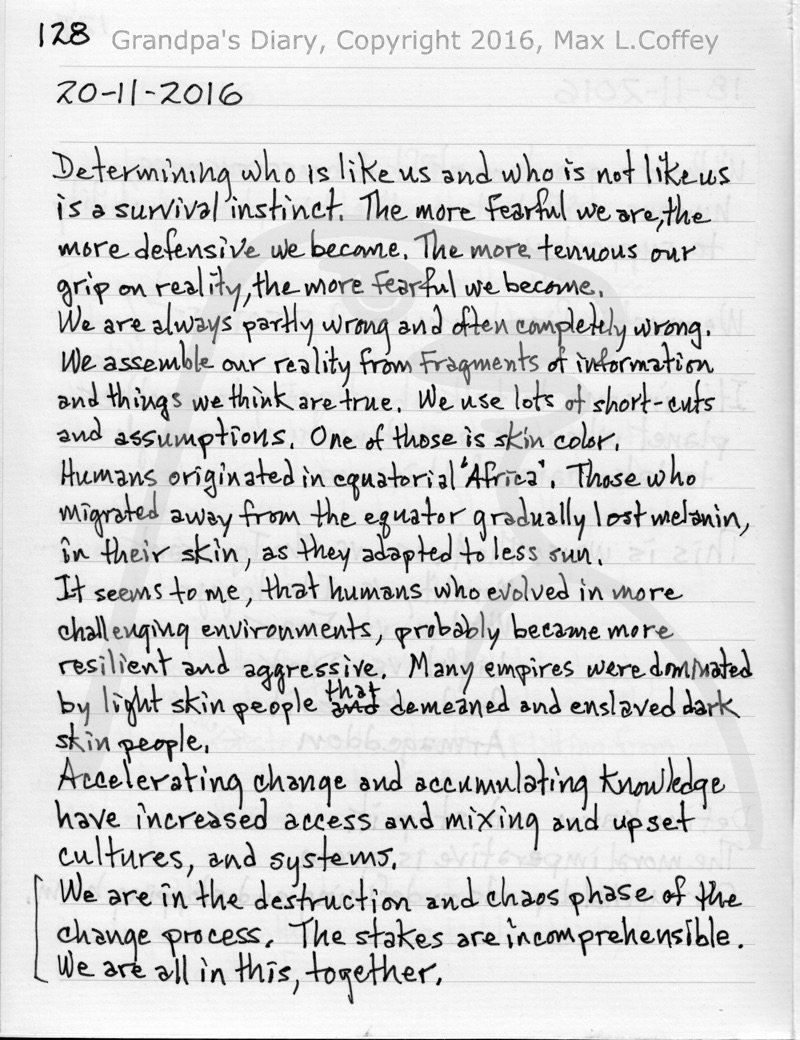 128 Grandpa's Diary, Copyright 2016, Max L.Coffey
20-11-2016
Determining who is like us and who is not like us
is a survival instinct. The more fearful we are, the
more defensive we become. The more tenuous our
grip on reality, the more fearful we become.
We are always partly wrong and often completely wrong.
We assemble our reality from fragments of information
and things we think are true. We use lots of short-cuts
and assumptions. One of those is skin color.
Humans originated in equatorial 'Africa'. Those who
migrated away from the equator gradually lost melanin,
in their skin, as they adapted to less sun.
It seems to me, that humans who evolved in more
challenging environments, probably became more
resilient and aggressive. Many empires were dominated
by light skin people that demeaned and enslaved dark
skin people.
Accelerating change and accumulating knowledge
have increased access and mixing and upset
cultures, and systems.
We are in the destruction and chaos phase of the
change process. The stakes are incomprehensible.
We are all in this, together.